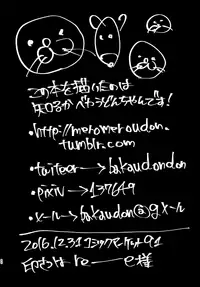 この本を描いたのは
知名かべうどんちゃんです!
・http://meromeroudon.
tumblr.com
・twitter→bakaudondon
・pixiv→137649
・メール→bakaudon@gメール
2016.12.31 コミックマーケット91
印刷は 様